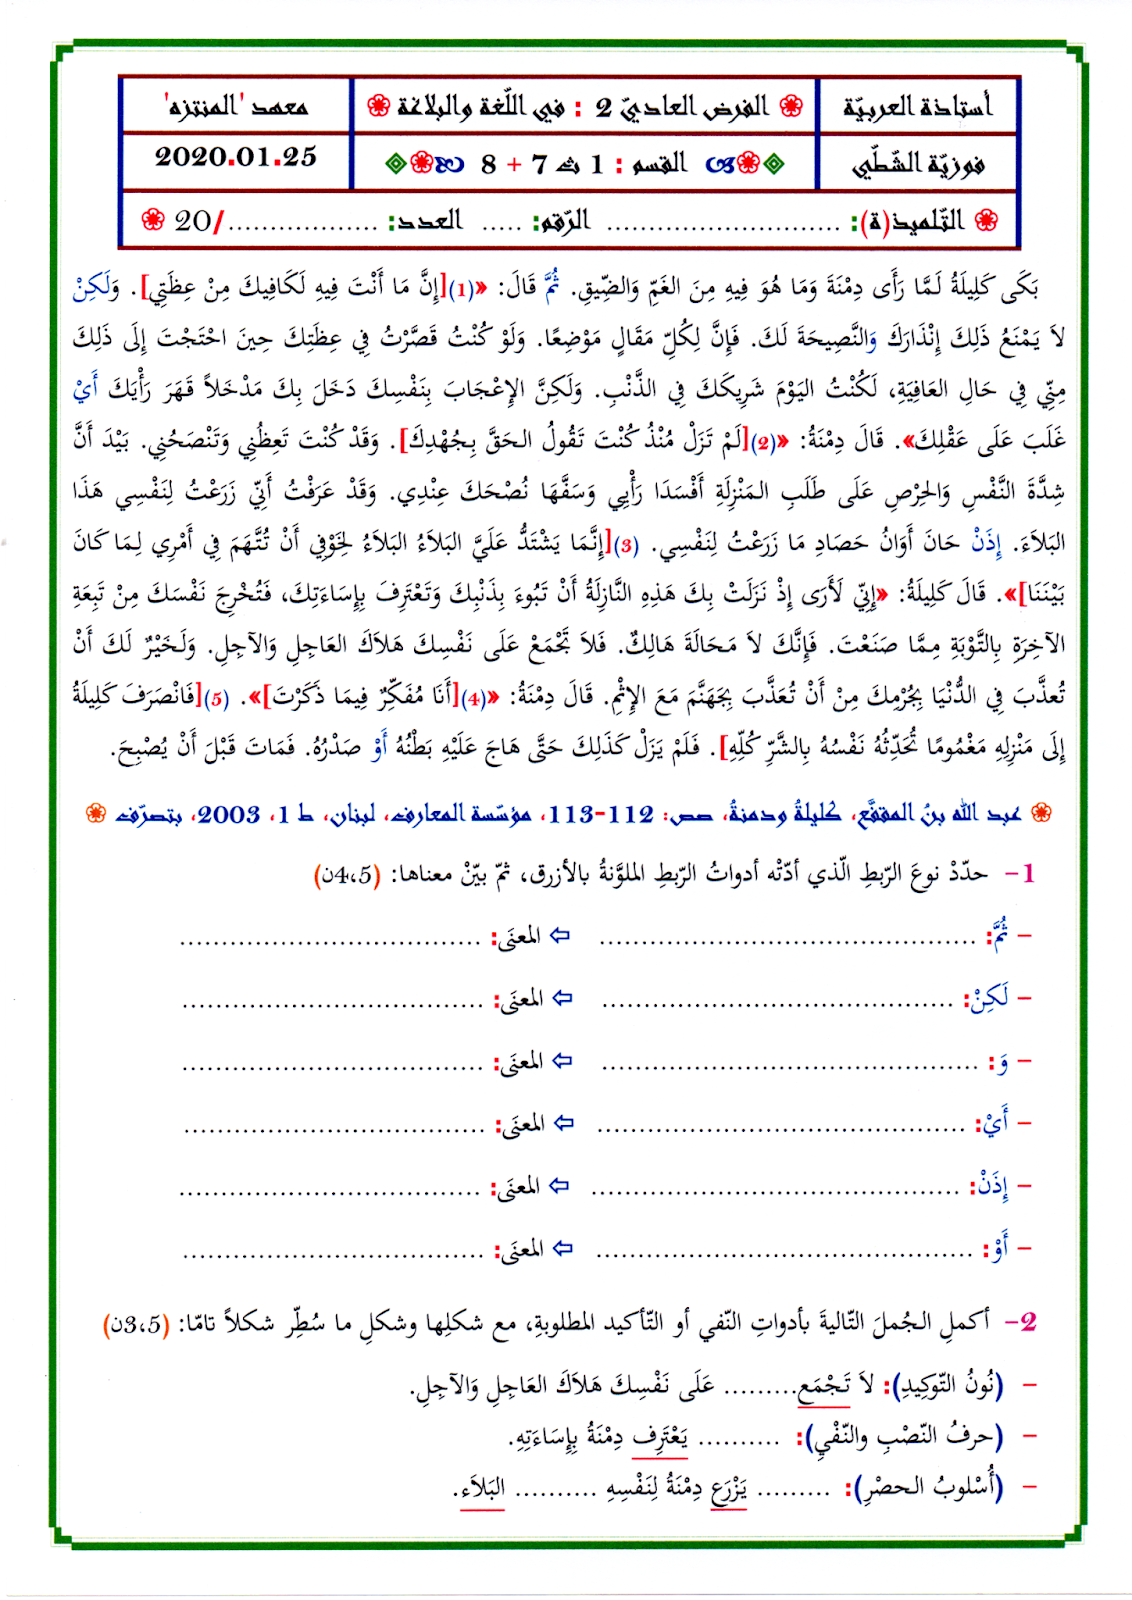 أستاذة العربيّة
الفرض العاديّ 2 : في اللّغة والبلاغة
معهد 'المنتزه'
فوزيّة الشّطّي
القسم : 1 ث 7 + 8
2020.01.25
التّلميذ(ة): ............................ الرّقم: ..... العدد: ................../20
بَكَى كَلِيلَةُ لَمَّا رَأَى دِمْنَةَ وَمَا هُوَ فِيهِ مِنَ الغَمِّ وَالضِّيقِ. ثُمَّ قَالَ: «(1)[إِنَّ مَا أَنْتَ فِيهِ لَكَافِيكَ مِنْ عِظَتِي]. وَلَكِنْ
لاَ يَمْنَعُ ذَلِكَ إِنْذَارَكَ وَالنَّصِيحَةَ لَكَ. فَإِنَّ لِكُلِّ مَقَالٍ مَوْضِعًا. وَلَوْ كُنْتُ قَصَّرْتُ فِي عِظَتِكَ حِينَ احْتَجْتَ إِلَى ذَلِكَ
مِنِّي فِي حَالِ العَافِيَةِ، لَكُنْتُ اليَوْمَ شَرِيكَكَ فِي الذَّنْبِ. وَلَكِنَّ الإِعْجَابَ بِنَفْسِكَ دَخَلَ بِكَ مَدْخَلاً قَهَرَ رَأْيَكَ أَيْ
غَلَبَ عَلَى عَقْلِكَ». قَالَ دِمْنَةُ: «(2)[لَمْ تَزَلْ مُنْذُ كُنْتَ تَقُولُ الحَقَّ بِجُهْدِكَ]. وَقَدْ كُنْتَ تَعِظُنِي وَتَنْصَحُنِي. بَيْدَ أَنَّ
شِدَّةَ النَّفْسِ وَالحِرْصِ عَلَى طَلَبِ المَنْزِلَةِ أَفْسَدَا رَأْيِي وَسَفَّهَا نُصْحَكَ عِنْدِي. وَقَدْ عَرَفْتُ أَنِّي زَرَعْتُ لِنَفْسِي هَذَا
البَلاَءَ. إِذَنْ حَانَ أَوَانُ حَصَادِ مَا زَرَعْتُ لِنَفْسِي. (3)[إِنَّمَا يَشْتَدُّ عَلَيَّ البَلاَءُ البَلاَءُ لِخَوْفِي أَنْ تُتَّهَمَ فِي أَمْرِي لِمَا كَانَ
بَيْنَنَا]». قَالَ كَلِيلَةُ: «إِنِّي لَأَرَى إِذْ نَزَلَتْ بِكَ هَذِهِ النَّازِلَةُ أَنْ تَبُوءَ بِذَنْبِكَ وَتَعْتَرِفَ بِإِسَاءَتِكَ، فَتُخْرِجَ نَفْسَكَ مِنْ تَبِعَةِ
الآخِرَةِ بِالتَّوْبَةِ مِمَّا صَنَعْتَ. فَإِنَّكَ لاَ مَحَالَةَ هَالِكٌ. فَلاَ تَجْمَعْ عَلَى نَفْسِكَ هَلاَكَ العَاجِلِ وَالآجِلِ. وَلَخَيْرٌ لَكَ أَنْ
تُعذَّبَ فِي الدُّنْيَا بِجُرْمِكَ مِنْ أَنْ تُعَذَّبَ بِجَهَنَّمَ مَعَ الإِثْمِ. قَالَ دِمْنَةُ: «(4)[أَنَا مُفَكِّرٌ فِيمَا ذَكَرْتَ]». (5)[فَانْصَرَفَ كَلِيلَةُ
إِلَى مَنْزِلِهِ مَغْمُومًا تُحَدِّثُهُ نَفْسُهُ بِالشَّرِّ كُلِّهِ]. فَلَمْ يَزَلْ كَذَلِكَ حَتَّى هَاجَ عَلَيْهِ بَطْنُهُ أَوْ صَدْرُهُ. فَمَاتَ قَبْلَ أَنْ يُصْبِحَ.
عبد الله بنُ المقفَّعِ، كليلةُ ودمنةُ، صص: 112-113، مؤسّسة المعارف، لبنان، ط 1، 2003، بتصرّف
1- حدّدْ نوعَ الرّبطِ الّذي أدّتْه أدواتُ الرّبطِ الملوَّنةُ بالأزرق، ثمّ بيّنْ معناها: (4،5ن)
– ثُمَّ: ............................................. ⇦ المعنَى: ....................................
– لَكِنْ: .......................................... ⇦ المعنَى: ....................................
– وَ: ............................................. ⇦ المعنَى: ....................................
– أَيْ: ............................................ ⇦ المعنَى: ....................................
– إِذَنْ: ............................................ ⇦ المعنَى: ....................................
– أَوْ: ............................................. ⇦ المعنَى: ....................................
2- أكملِ الجُملَ التّاليةَ بأدواتِ النّفي أو التّأكيد المطلوبةِ، مع شكلِها وشكلِ ما سُطِّر شكلاً تامّا: (3،5ن)
– (نُونُ التّوكِيدِ): لاَ تَجْمَع......... عَلَى نَفْسِكَ هَلاَكَ العَاجِلِ وَالآجِلِ.
– (حرفُ النّصْبِ والنّفْيِ): .......... يَعْتَرِف دِمْنَةُ بِإِسَاءَتِهِ.
– (أُسْلوبُ الحصْرِ): ......... يَزْرَع دِمْنَةُ لِنَفْسِهِ .......... البَلاَء.